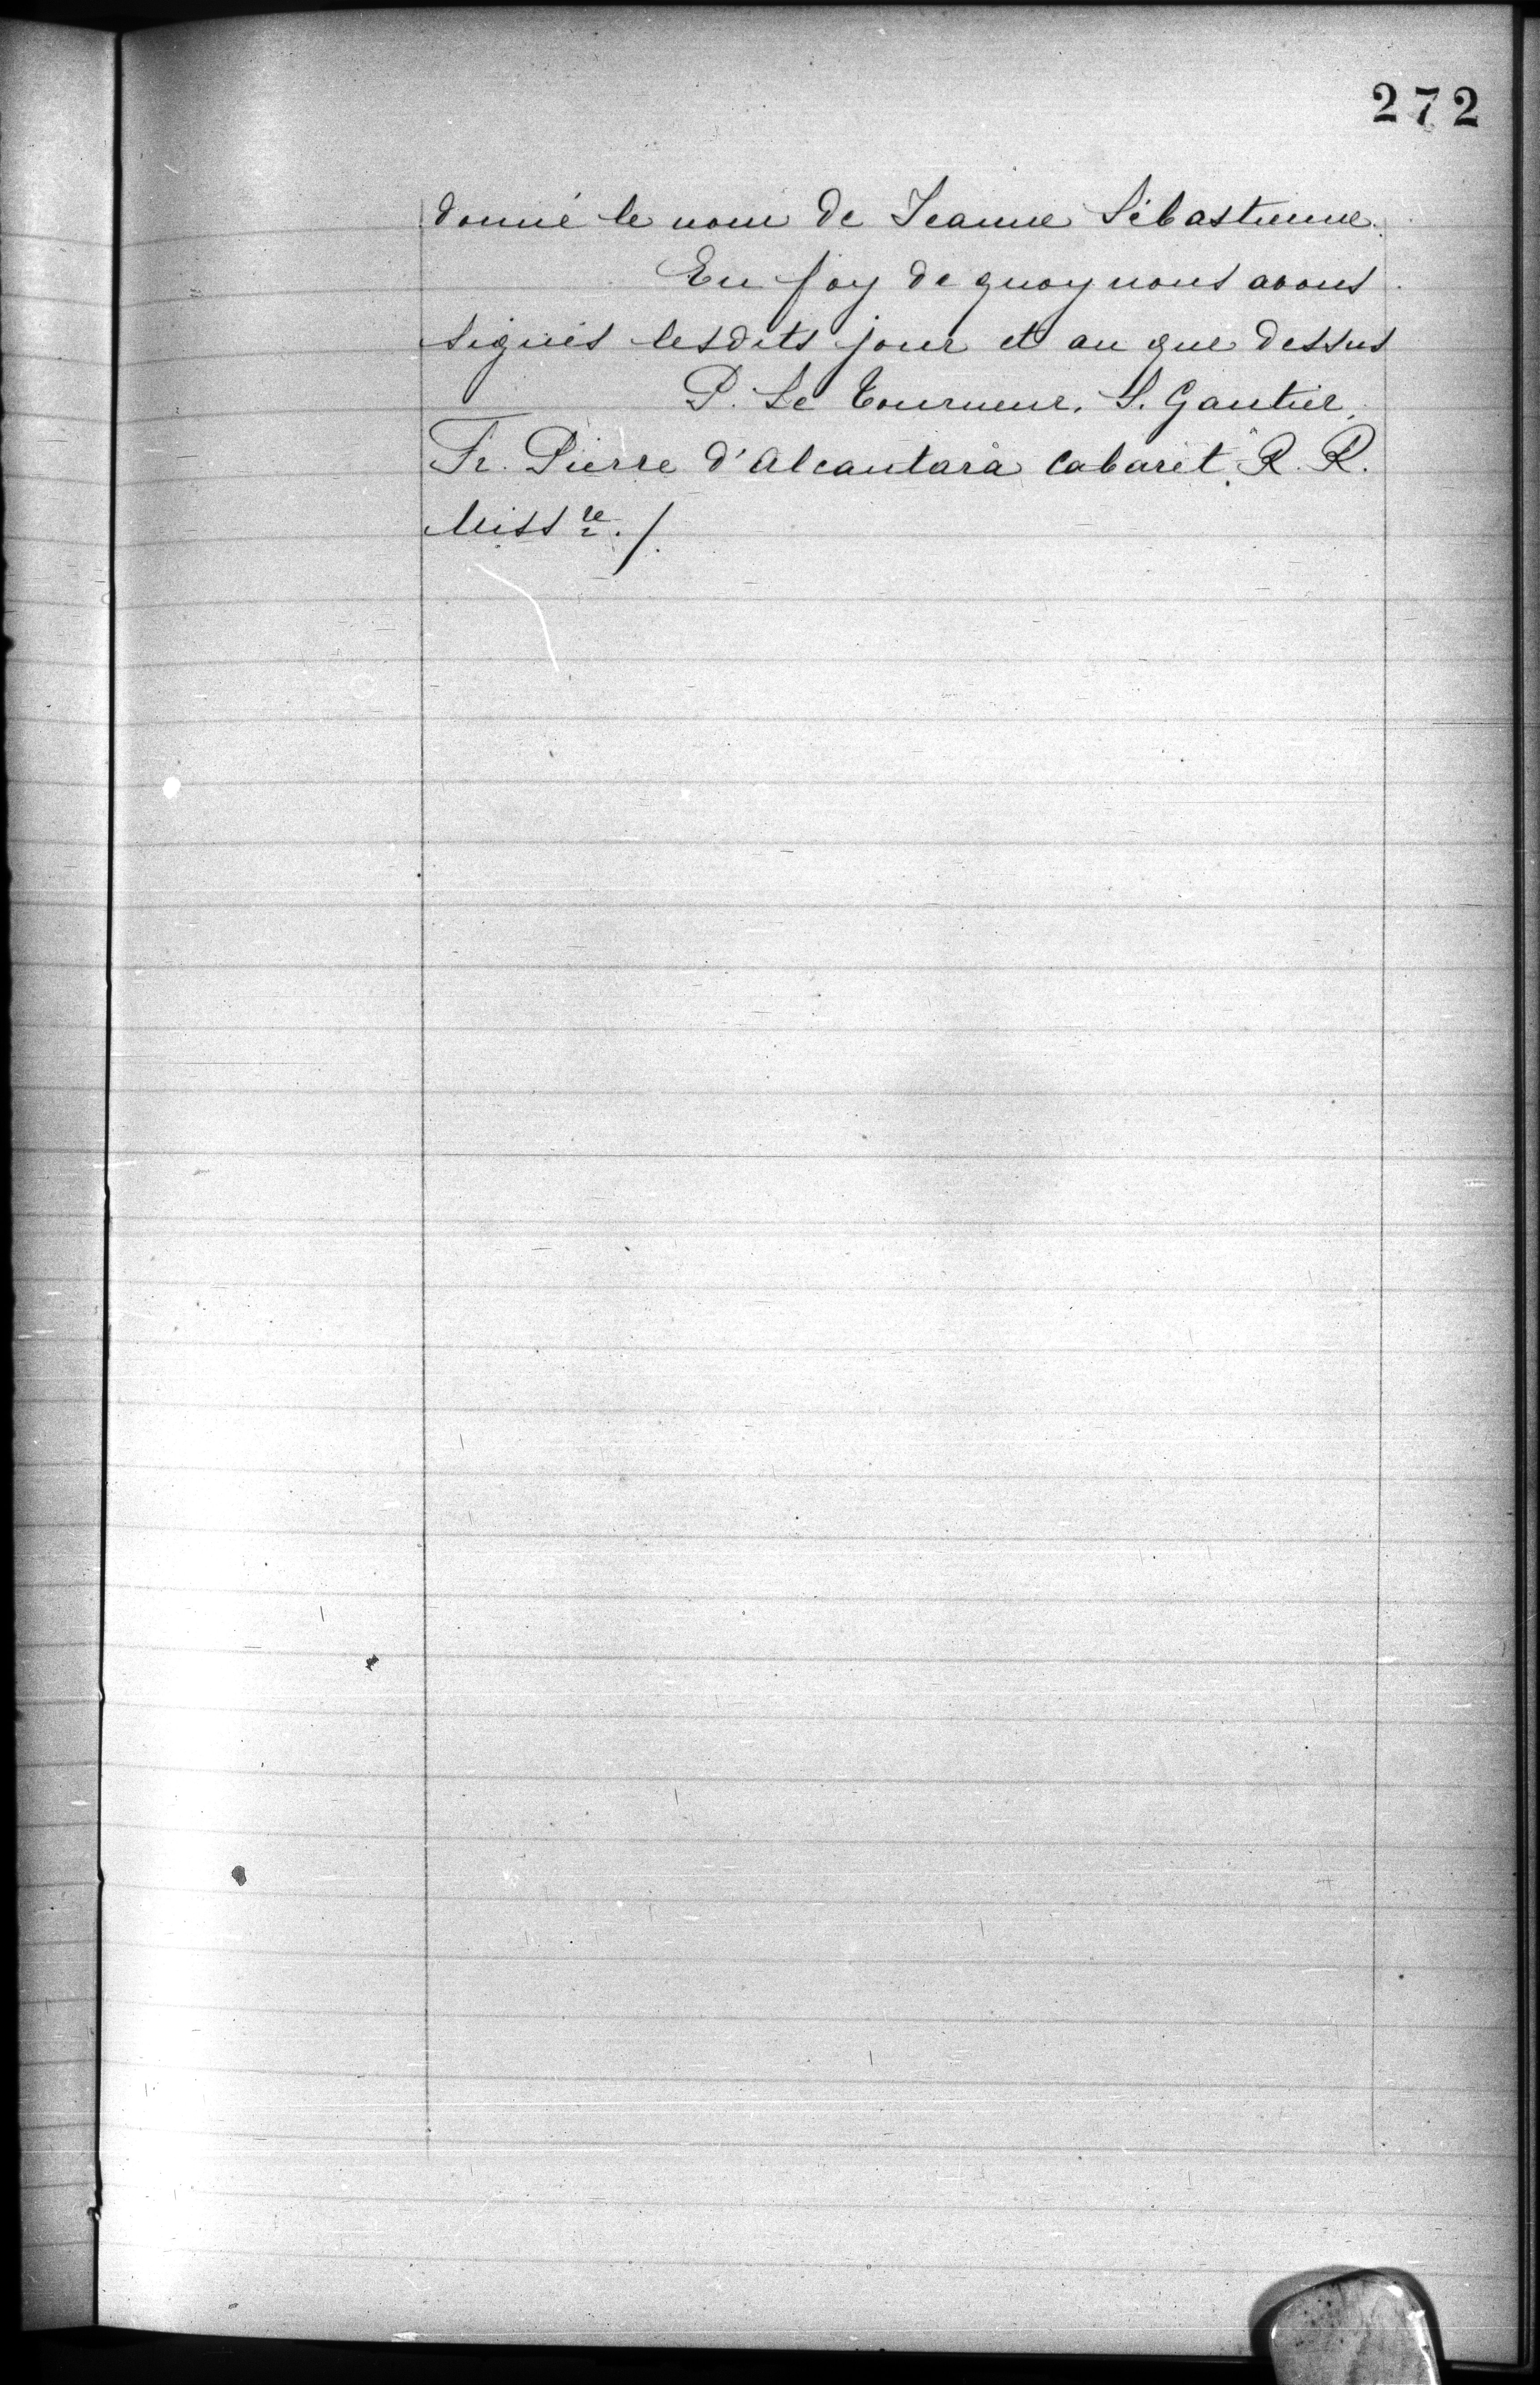 272
donné le nom de Jeanne Sébastienne.
En foy de quoy nous avons
signés lesdits jour et an que dessus
P. Le Tourneur. S. Gautier.
Fr. Pierre d'Alcantara Cabaret. R. R.
Miss re. /.